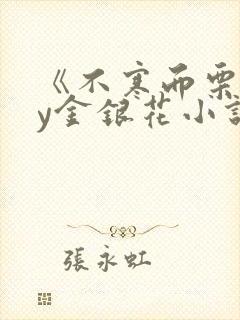 《不寒而栗
y金银花小说
張永虹